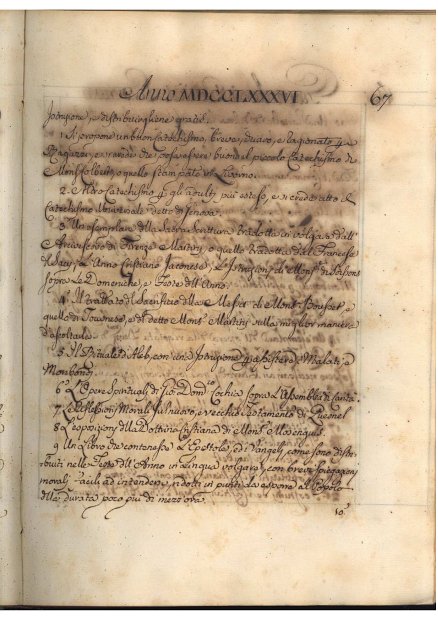 Anno MDCCLXXXVI
67
Istruzione, e distribuirgliene gratis.
1. Si propone un buon Catechismo, breve, chiaro, e ragionato p
Ragazzi, e si crede che possa essere buono il piccolo Catechismo di
Mons. Colbert, o quello stampato in Livorno.
2. Altro Catechismo p gli adulti più esteso, e si crede atto il
Catechismo Universale detto di Genova.
3. Un esemplare della Sacra Scrittura tradotta in volgare dall'
Arcivescovo di Firenze Martini, o quella tradotta dal Francese
Sacy, L'Anno Cristiano Le Istruzioni di Mons. di Soissons
sopra le Domeniche, e Feste dell'Anno.
4. Il trattato del Sacrifizio della Messa di Mons. Bossuet, e
quello di e di detto Mons. Martini sulla miglior maniera
d'ascoltarla.
5. Il Rituale d'Aleth, con una Istruzione p assistere a Malati, e
Moribondi.
6. L'Opere Spirituali di sopra l'Assemblea Santa.
7. Le Riflessioni Morali sul nuovo, e vecchio Testamento di Quesnel
8. L'esposizione della Dottrina Cristiana di Mons. Mesenguy.
Un Libro che contenesse L'Epistole, ed i Vangeli, come sono distri-
buiti nelle Feste dell'Anno in Lingua volgare, con brevi spiegazioni
morali facili ad intendersi, ridotti in punti da esporre al Popolo
della durata poco più di mezz'ora.
10.